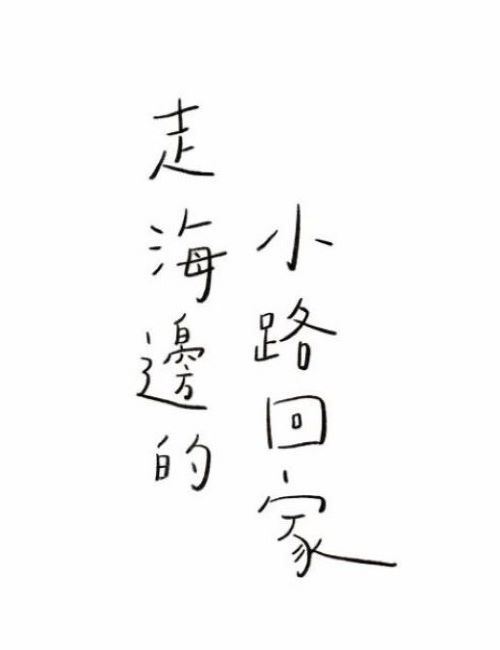 走海邊的
小路回家